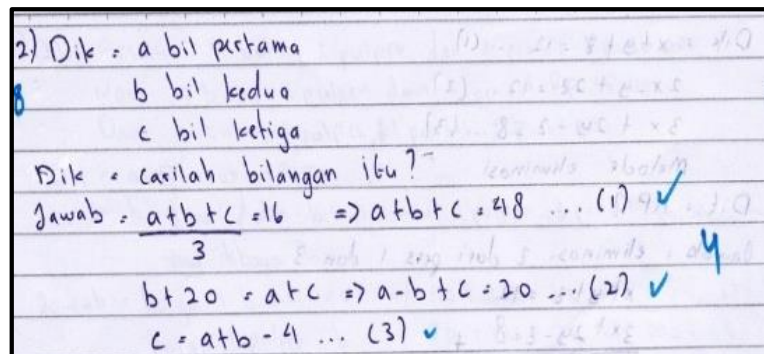 2) Dik = a bil pertama
8 b bil kedua
c bil ketiga
Dik = carilah bilangan itu?
Jawab = a+b+c/3 = 16 => a+b+c = 48 ... (1) ✓
4
b+20 = a+c => a-b+c = 20 ... (2) ✓
c = a+b-4 ... (3) ✓